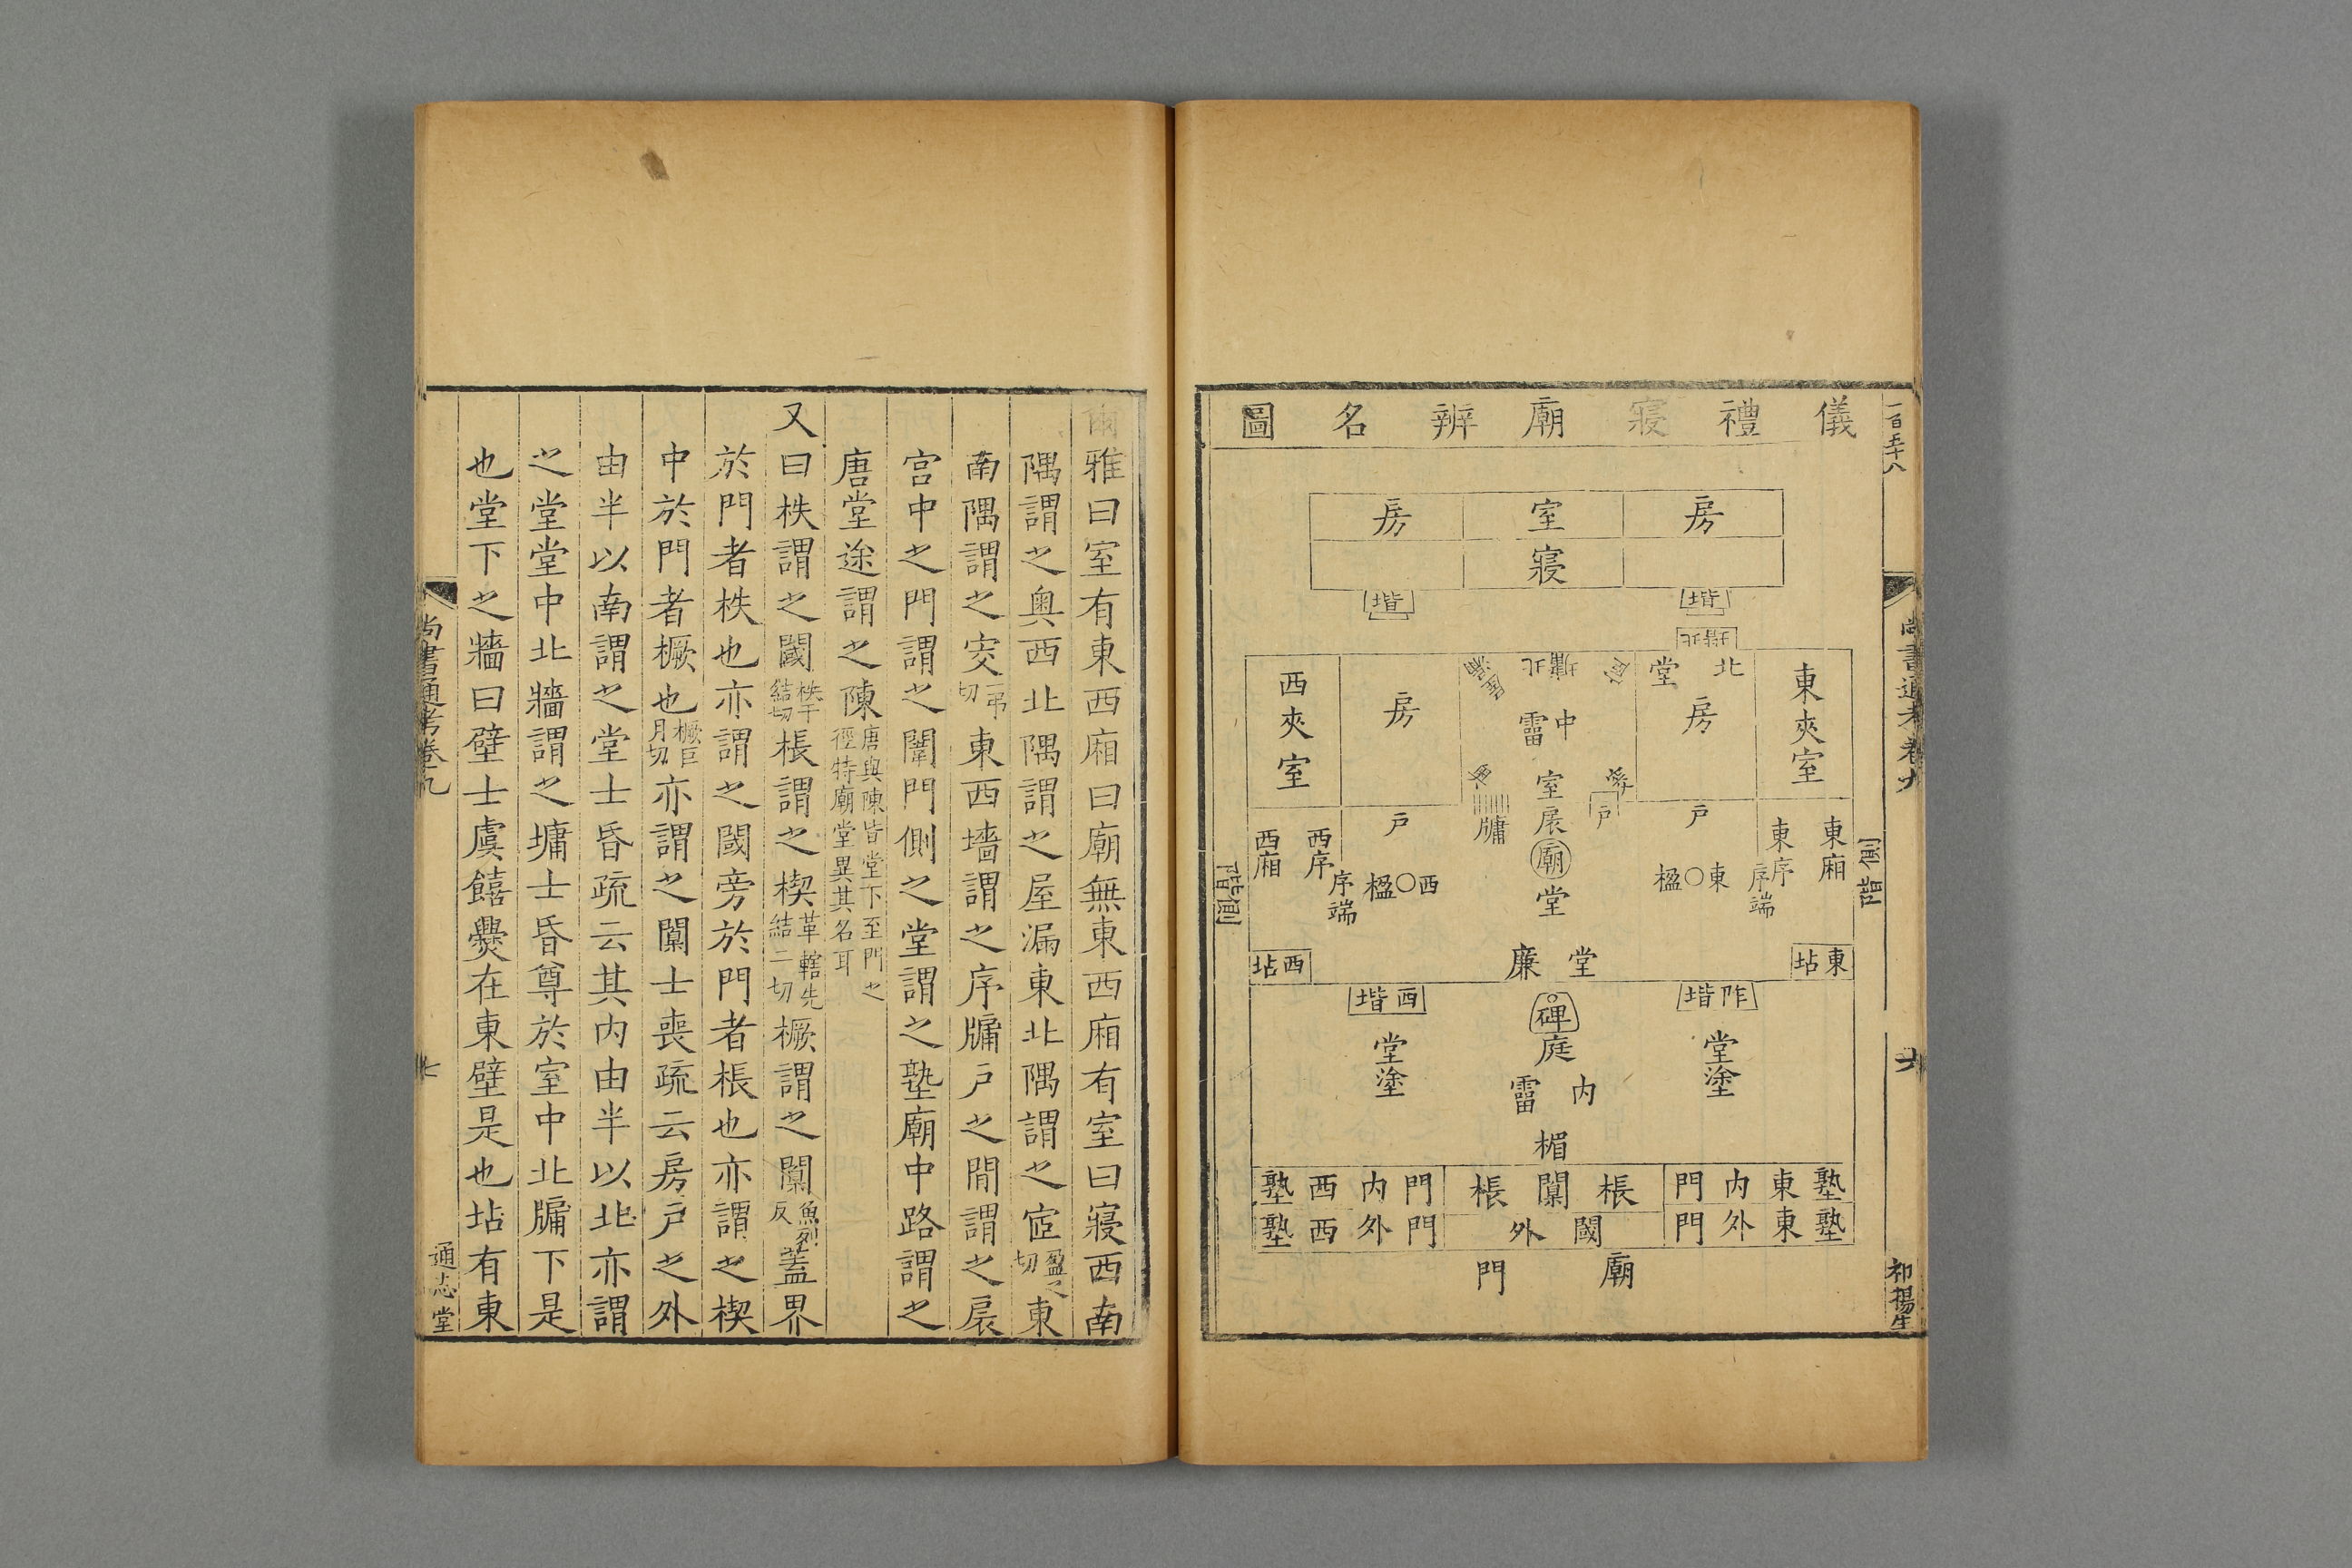 儀禮寢廟辨名圖
房 室 房
寢
堦 堦
北堦
東夾室
北堂
房
北墉
中霤
房
西夾室
室
戶
牖
戶
戶
扆
廟
堂
東廂
東序
序端
東○楹
西○楹
西序
序端
西廂
側階
側階
東坫
堂廉
西坫
阼堦
西堦
碑
庭
堂塗
堂塗
內霤
楣
塾東內門 棖闑棖 門內西塾
塾東外門 閾外 門外西塾
廟門
一百五十八
尚書通考卷九
六
祁揚生
爾雅曰室有東西廂曰廟無東西廂有室曰寢西南
隅謂之奧西北隅謂之屋漏東北隅謂之宧盈之切東
南隅謂之穾一弔切東西墻謂之序牖戶之間謂之扆
宮中之門謂之闈門側之堂謂之塾廟中路謂之
唐堂途謂之陳唐與陳皆堂下至門之徑特廟堂異其名耳
又曰柣謂之閾柣千結切棖謂之楔革轄先結二切橛謂之闑魚列反蓋界
於門者柣也亦謂之閾旁於門者棖也亦謂之楔
中於門者橛也橛巨月切亦謂之闑士喪疏云房戶之外
由半以南謂之堂士昏疏云其內由半以北亦謂
之堂堂中北牆謂之墉士昏尊於室中北牖下是
也堂下之牆曰壁士虞饎爨在東壁是也坫有東
尚書通考卷九
七
通志堂